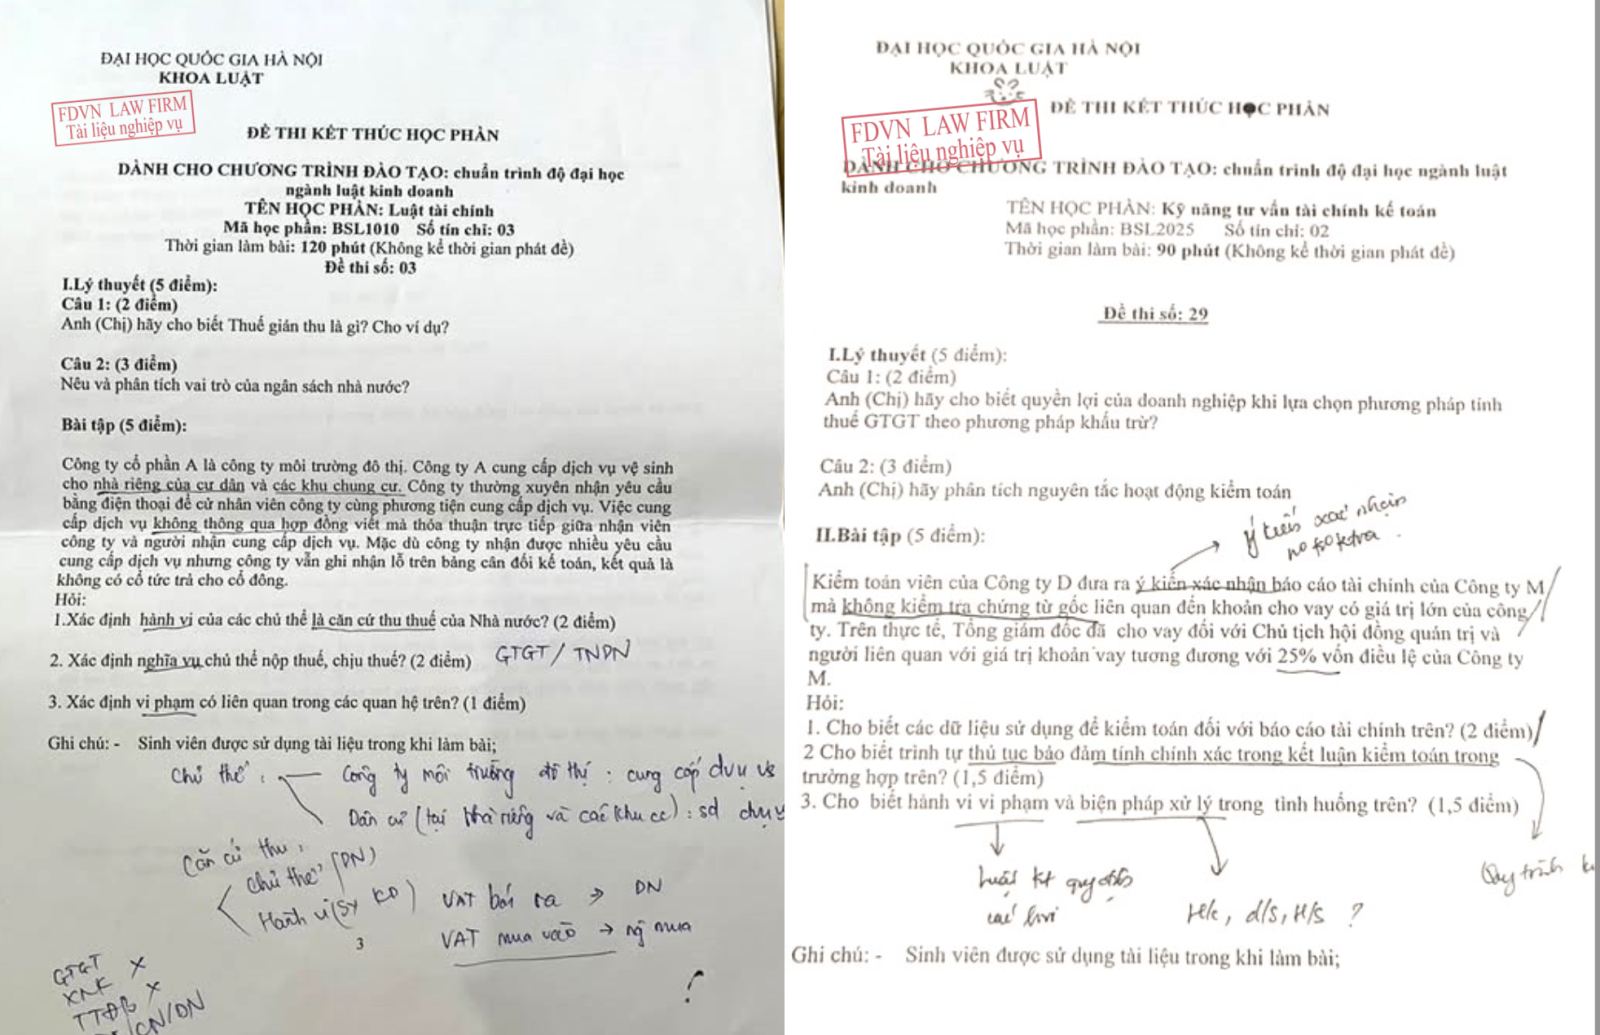 ĐẠI HỌC QUỐC GIA HÀ NỘI
KHOA LUẬT
FDVN LAW FIRM
Tài liệu nghiệp vụ
ĐỀ THI KẾT THÚC HỌC PHẦN
DÀNH CHO CHƯƠNG TRÌNH ĐÀO TẠO: chuẩn trình độ đại học
ngành luật kinh doanh
TÊN HỌC PHẦN: Luật tài chính
Mã học phần: BSL1010 Số tín chỉ: 03
Thời gian làm bài: 120 phút (Không kể thời gian phát đề)
Đề thi số: 03
I.Lý thuyết (5 điểm):
Câu 1: (2 điểm)
Anh (Chị) hãy cho biết Thuế gián thu là gì? Cho ví dụ?
Câu 2: (3 điểm)
Nêu và phân tích vai trò của ngân sách nhà nước?
Bài tập (5 điểm):
Công ty cổ phần A là công ty môi trường đô thị. Công ty A cung cấp dịch vụ vệ sinh
cho nhà riêng của cư dân và các khu chung cư. Công ty thường xuyên nhận yêu cầu
bằng điện thoại để cử nhân viên công ty cùng phương tiện cung cấp dịch vụ. Việc cung
cấp dịch vụ không thông qua hợp đồng viết mà thỏa thuận trực tiếp giữa nhận viên
công ty và người nhận cung cấp dịch vụ. Mặc dù công ty nhận được nhiều yêu cầu
cung cấp dịch vụ nhưng công ty vẫn ghi nhận lỗ trên bảng cân đối kế toán, kết quả là
không có cổ tức trả cho cổ đông.
Hỏi:
1.Xác định hành vi của các chủ thể là căn cứ thu thuế của Nhà nước? (2 điểm)
2. Xác định nghĩa vụ chủ thể nộp thuế, chịu thuế? (2 điểm) GTGT / TNDN
3. Xác định vi phạm có liên quan trong các quan hệ trên? (1 điểm)
Ghi chú: - Sinh viên được sử dụng tài liệu trong khi làm bài;
Chủ thể : Công ty môi trường đô thị : cung cấp dvụ vs
Dân cư (tại nhà riêng và các khu cc) : sd dvụ
Căn cứ thu :
Chủ thể (DN)
Hành vi (SX KD)
VAT bán ra → DN
VAT mua vào → ng mua
3
GTGT x
XNK
TTĐB x
CN/DN
ĐẠI HỌC QUỐC GIA HÀ NỘI
KHOA LUẬT
FDVN LAW FIRM
Tài liệu nghiệp vụ
ĐỀ THI KẾT THÚC HỌC PHẦN
DÀNH CHO CHƯƠNG TRÌNH ĐÀO TẠO: chuẩn trình độ đại học ngành luật
kinh doanh
TÊN HỌC PHẦN: Kỹ năng tư vấn tài chính kế toán
Mã học phần: BSL2025 Số tín chỉ: 02
Thời gian làm bài: 90 phút (Không kể thời gian phát đề)
Đề thi số: 29
I.Lý thuyết (5 điểm):
Câu 1: (2 điểm)
Anh (Chị) hãy cho biết quyền lợi của doanh nghiệp khi lựa chọn phương pháp tính
thuế GTGT theo phương pháp khấu trừ?
Câu 2: (3 điểm)
Anh (Chị) hãy phân tích nguyên tắc hoạt động kiểm toán
II.Bài tập (5 điểm):
ý kiến xác nhận
no ktra
Kiểm toán viên của Công ty D đưa ra ý kiến xác nhận báo cáo tài chính của Công ty M
mà không kiểm tra chứng từ gốc liên quan đến khoản cho vay có giá trị lớn của công
ty. Trên thực tế, Tổng giám đốc đã cho vay đối với Chủ tịch hội đồng quản trị và
người liên quan với giá trị khoản vay tương đương với 25% vốn điều lệ của Công ty
M.
Hỏi:
1. Cho biết các dữ liệu sử dụng để kiểm toán đối với báo cáo tài chính trên? (2 điểm)
2 Cho biết trình tự thủ tục bảo đảm tính chính xác trong kết luận kiểm toán trong
trường hợp trên? (1,5 điểm)
3. Cho biết hành vi vi phạm và biện pháp xử lý trong tình huống trên? (1,5 điểm)
Luật kt quy định
các hvi
H/c, d/s, H/s ?
Quy trình k
Ghi chú: - Sinh viên được sử dụng tài liệu trong khi làm bài;